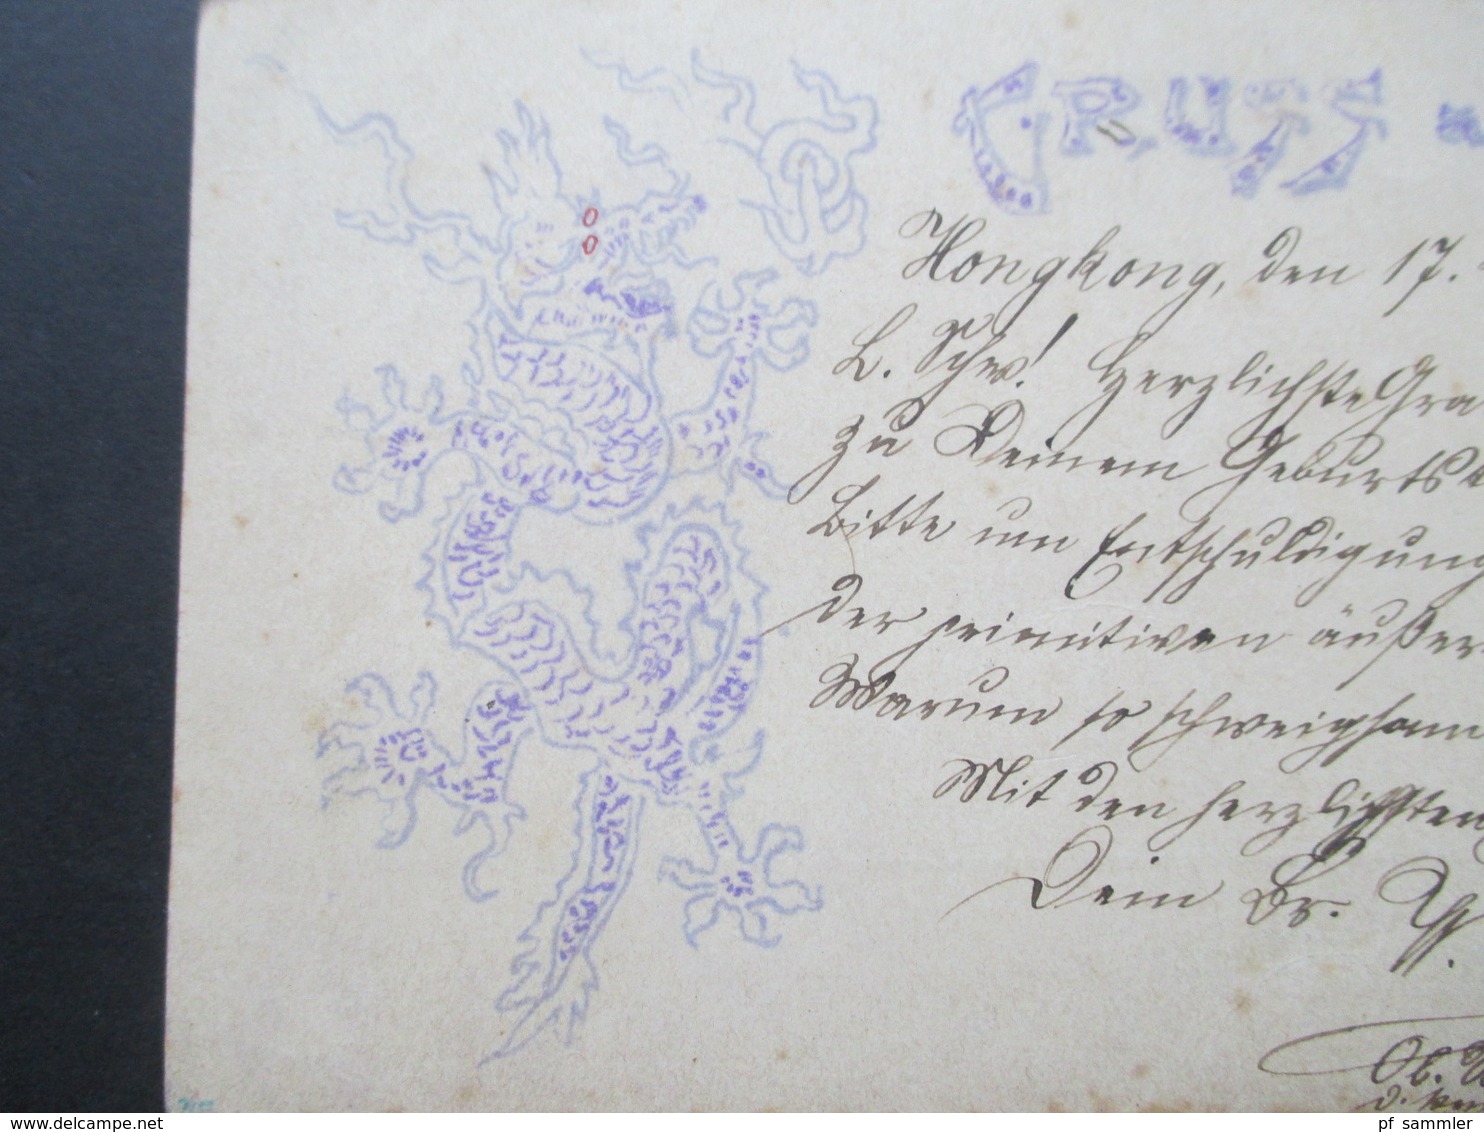 GRUSS
Hongkong, den 17.
L. Schw.! Herzlichste Gra
zu Deinem Geburts
Bitte um Entschuldigung
der primitiven äußer
Warum so schweigsam
Mit den herzlichsten
Dein Br.
Ob.
d.
www.delcampe.net
pf_sammler